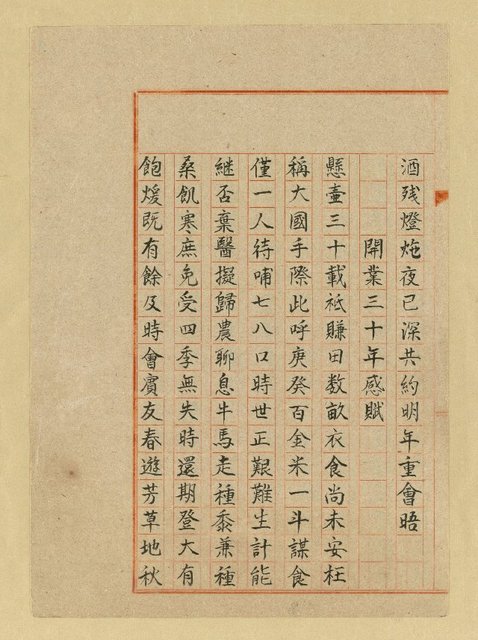 酒残燈炧夜已深共約明年重會晤
開業三十年感賦
懸壺三十載祗賺田数畝衣食尚未安枉
稱大國手際此呼庚癸百金米一斗謀食
僅一人待哺七八口時世正艱難生計能
継否棄醫擬歸農聊息牛馬走種黍兼種
桑飢寒庶免受四季無失時還期登大有
飽煖既有餘及時會賓友春遊芳草地秋